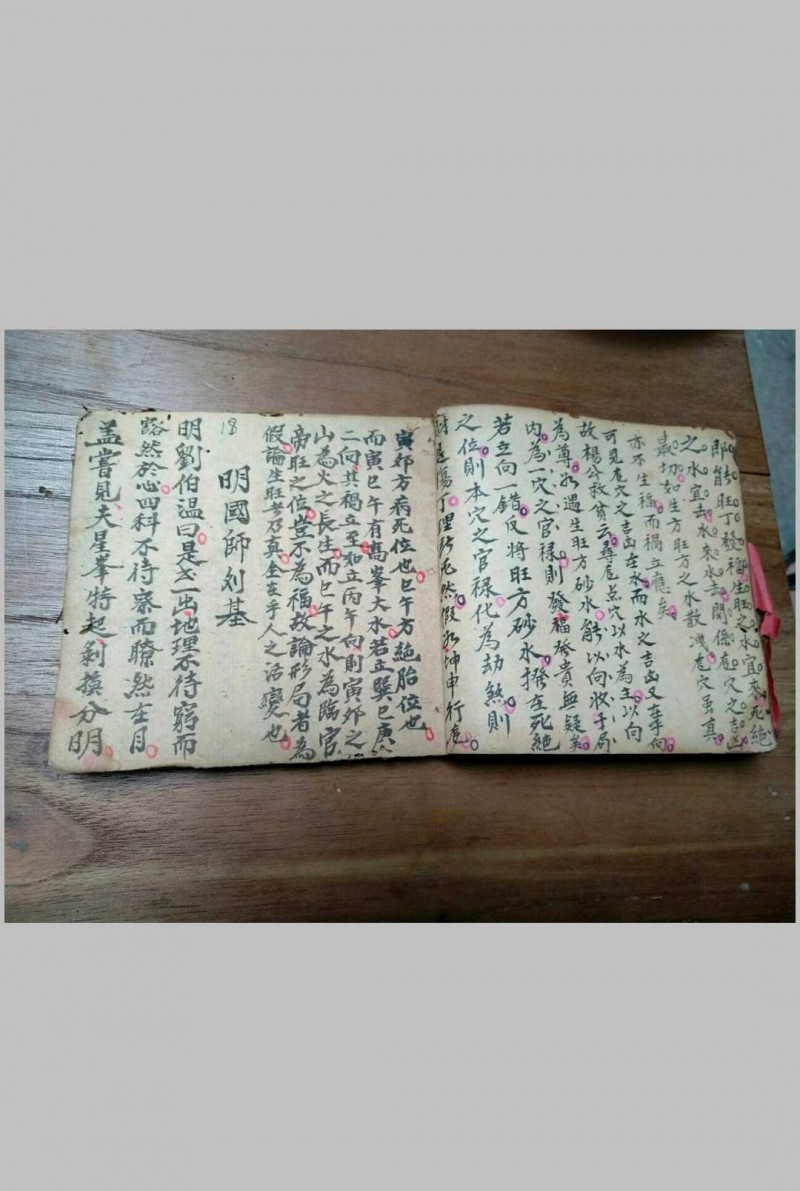 即能旺丁發福生旺之水宜來死絕
之水宜去水來水去関係龙穴之吉凶
最切如生方旺方之水散洩龙穴虽真
亦不生福而禍立應矣
可見龙穴之吉凶在水而水之吉凶又在乎向
故楊公救貧云尋龙点穴以水為主以向
為尊水遇生旺方砂水能以向收于局
内為一穴之官禄則發福發貴無疑矣
若立向一錯反將旺方砂水撥在死絕
之位則本穴之官禄化為劫煞則
財退傷丁理所
然假如坤申行龙
寅卯方病死位也巳午方絕胎位也
而寅巳午有高峯大水若立巽巳庚
二向其禍立至如立丙午向則寅卯之
山為火之長生而巳午之水為臨官
帝旺之位豈不為福故論形局者為
假論生旺者乃真全在乎人之活變也
18
明國師刘基
明劉伯温曰是書一出地理不待窮而
豁然於心四科不待察而瞭然在目
盖嘗見夫星峯特起剝換分明